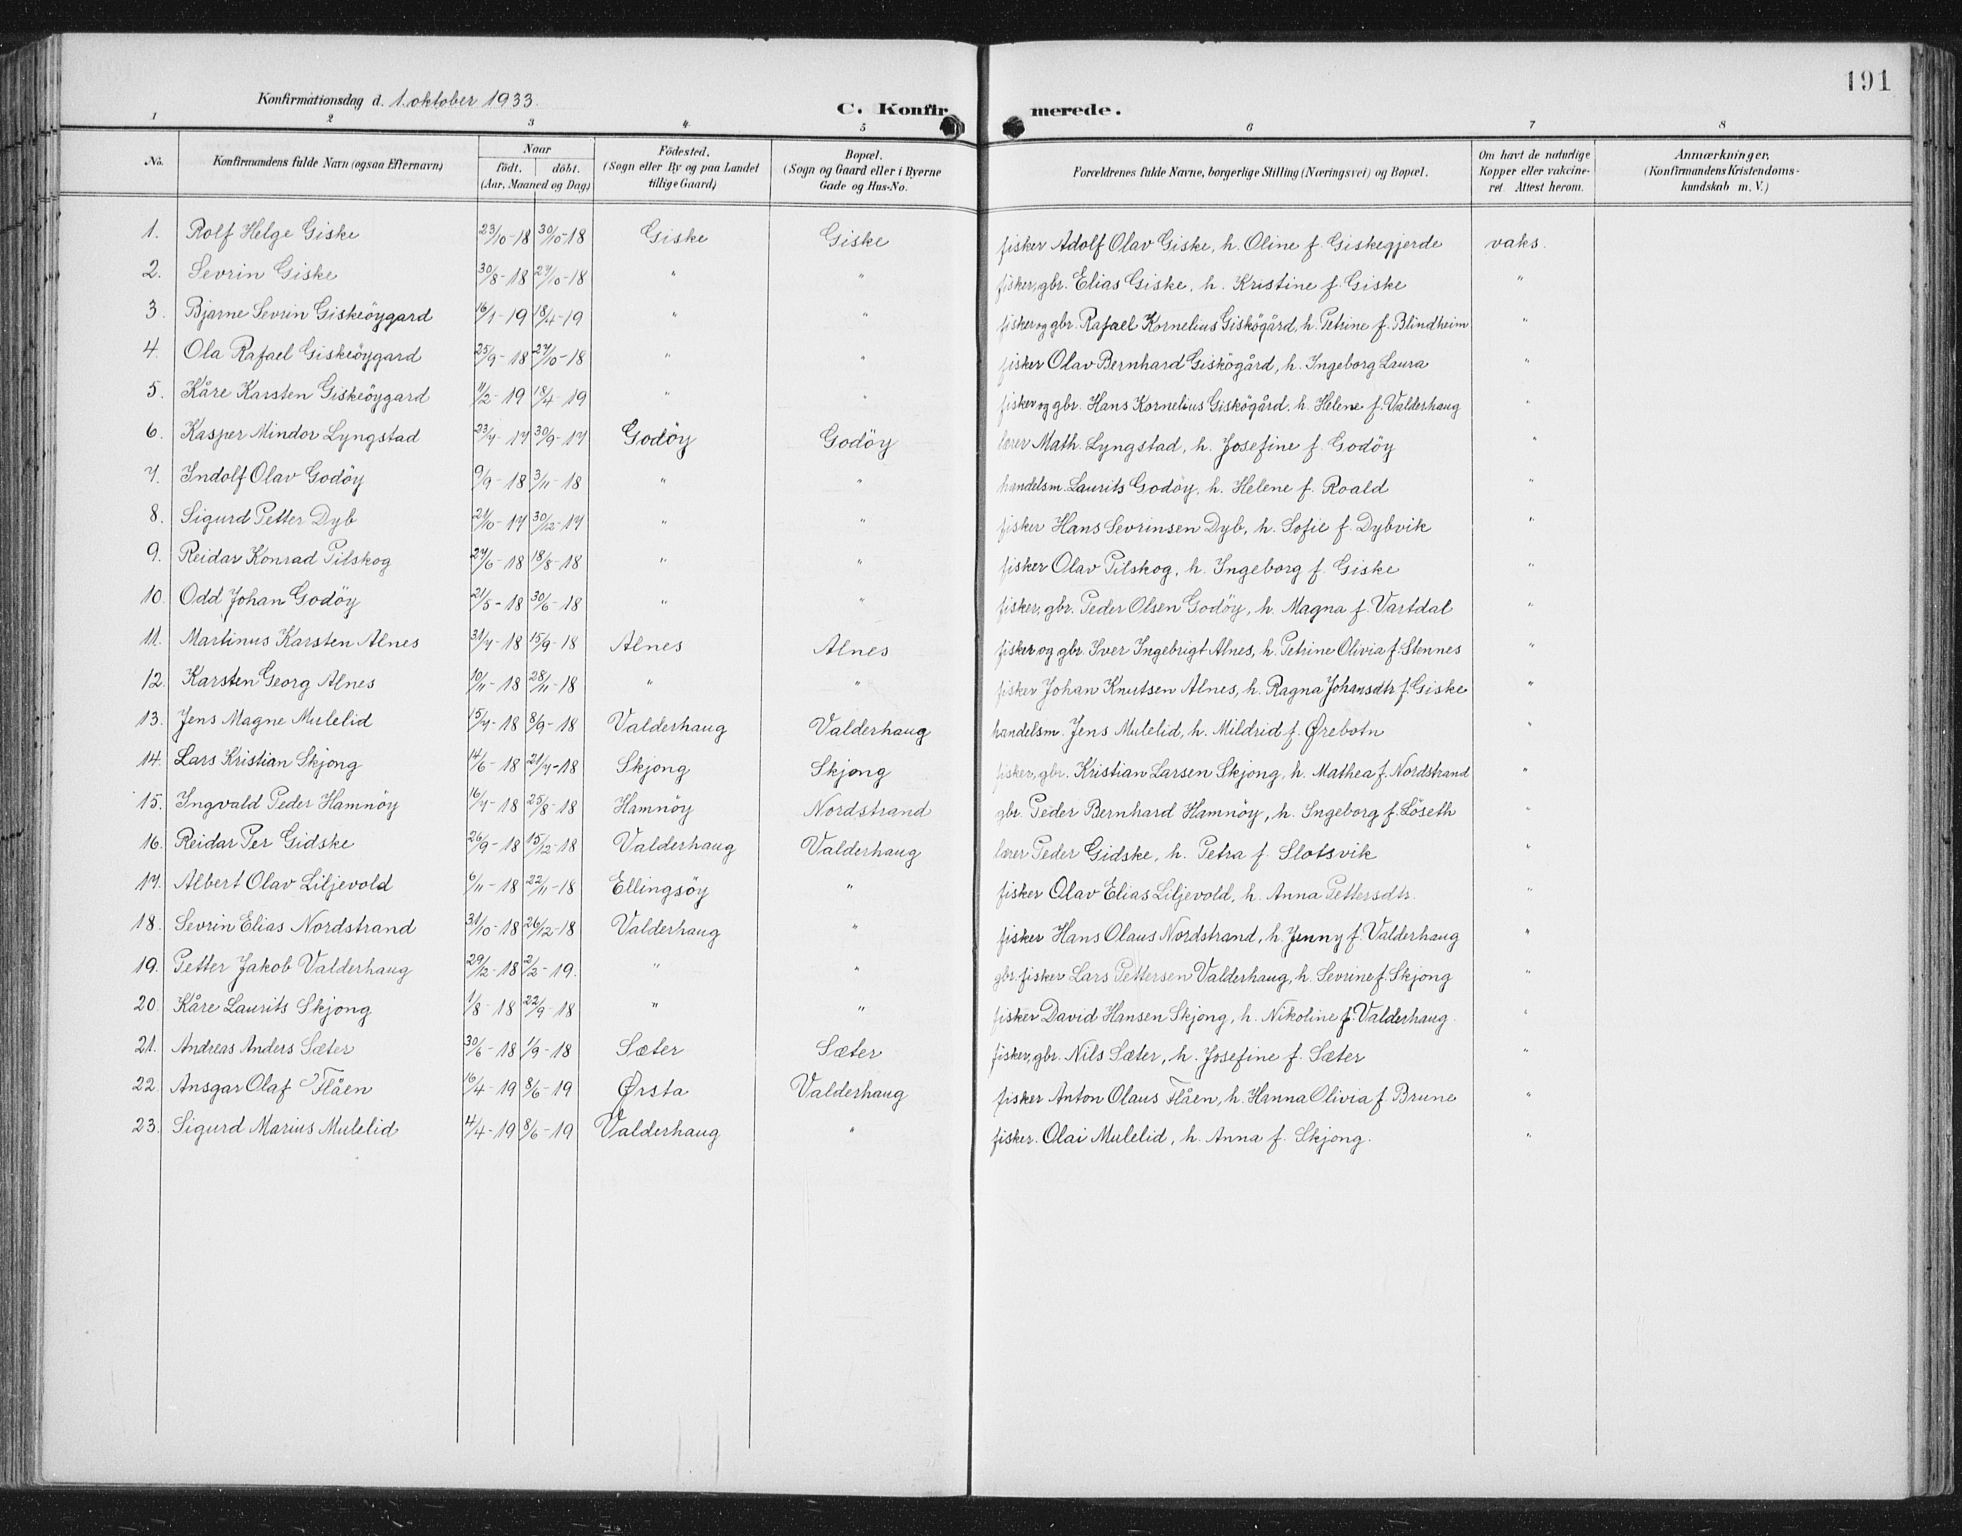 191
Konfirmationsdag d. 1. oktober 1933.
C. Konfirmerede.
1 2 3 4 5 6 7 8
No. Konfirmandens fulde Navn (ogsaa Efternavn) Naar födt. döbt. (Aar, Maaned og Dag) Födested. (Sogn eller By og paa Landet tillige Gaard) Bopæl. (Sogn og Gaard eller i Byerne Gade og Hus-No. Forældrenes fulde Navne, borgerlige Stilling (Næringsvei) og Bopæl. Om havt de naturlige Kopper eller vakcineret. Attest herom. Anmærkninger. (Konfirmandens Kristendomskundskab m. V.)
1. Rolf Helge Giske 23/10-18 30/10-18 Giske Giske fisker Adolf Olav Giske, h. Oline f. Giskegjerde vaks.
2. Sevrin Giske 30/8-18 27/10-18 " " fisker, gbr. Elias Giske, h. Kristine f. Giske "
3. Bjarne Sevrin Giskeöygard 16/1-19 18/4-19 " " fisker og gbr. Rafael Kornelius Giskögård, h. Petrine f. Blindheim "
4. Ola Rafael Giskeöygard 25/9-18 27/10-18 " " fisker Olav Bernhard Giskögård, h. Ingeborg Laura "
5. Kåre Karsten Giskeöygard 11/2-19 18/4-19 " " fisker og gbr. Hans Kornelius Giskögård, h. Helene f. Valderhaug "
6. Kasper Mindor Lyngstad 23/7-17 30/9-17 Godöy Godöy lærer Math. Lyngstad, h. Josefine f. Godöy "
7. Indolf Olav Godöy 9/9-18 3/11-18 " " handelsm. Laurits Godöy, h. Helene f. Roald "
8. Sigurd Petter Dyb 21/10-17 30/12-17 " " fisker Hans Sevrinsen Dyb, h. Sofie f. Dybvik "
9. Reidar Konrad Pilskog 27/6-18 18/8-18 " " fisker Olav Pilskog, h. Ingeborg f. Giske "
10. Odd Johan Godöy 21/5-18 30/6-18 " " fisker, gbr. Peder Olsen Godöy, h. Magna f. Vartdal "
11. Martinus Karsten Alnes 31/7-18 15/9-18 Alnes Alnes fisker og gbr. Iver Ingebrigt Alnes, h. Petrine Olivia f. Stennes "
12. Karsten Georg Alnes 10/11-18 28/11-18 " " fisker Johan Knutsen Alnes, h. Ragna Johansdtr f. Giske "
13. Jens Magne Mulelid 15/7-18 8/9-18 Valderhaug Valderhaug handelsm. Jens Mulelid, h. Mildrid f. Ørebotn "
14. Lars Kristian Skjong 14/6-18 21/7-18 Skjong Skjong fisker, gbr. Kristian Larsen Skjong, h. Mathea f. Nordstrand "
15. Ingvald Peder Hamnöy 16/7-18 25/8-18 Hamnöy Nordstrand gbr. Peder Bernhard Hamnöy, h. Ingeborg f. Löseth "
16. Reidar Per Gidske 26/9-18 15/12-18 Valderhaug Valderhaug lærer Peder Gidske, h. Petra f. Slotsvik "
17. Albert Olav Liljevold 6/11-18 22/11-18 Ellingsöy " fisker Olav Elias Liljevold, h. Anna Pettersdtr. "
18. Sevrin Elias Nordstrand 31/10-18 26/12-18 Valderhaug " fisker Hans Olaus Nordstrand, h. Jenny f. Valderhaug "
19. Petter Jakob Valderhaug 29/12-18 2/2-19. " " gbr. fisker Lars Pettersen Valderhaug, h. Sevrine f. Skjong "
20. Kåre Laurits Skjong 1/8-18 22/9-18 " " fisker David Hansen Skjong, h. Nikoline f. Valderhaug "
21. Andreas Anders Sæter 30/6-18 1/9-18 Sæter Sæter fisker, gbr. Nils Sæter, h. Josefine f. Sæter "
22. Ansgar Olaf Flåen 16/4-19 8/6-19 Ørsta Valderhaug fisker Anton Olaus Flåen, h. Hanna Olivia f. Brune "
23. Sigurd Marius Mulelid 4/4-19 8/6-19 Valderhaug " fisker. Olai Mulelid, h. Anna f. Skjong. "